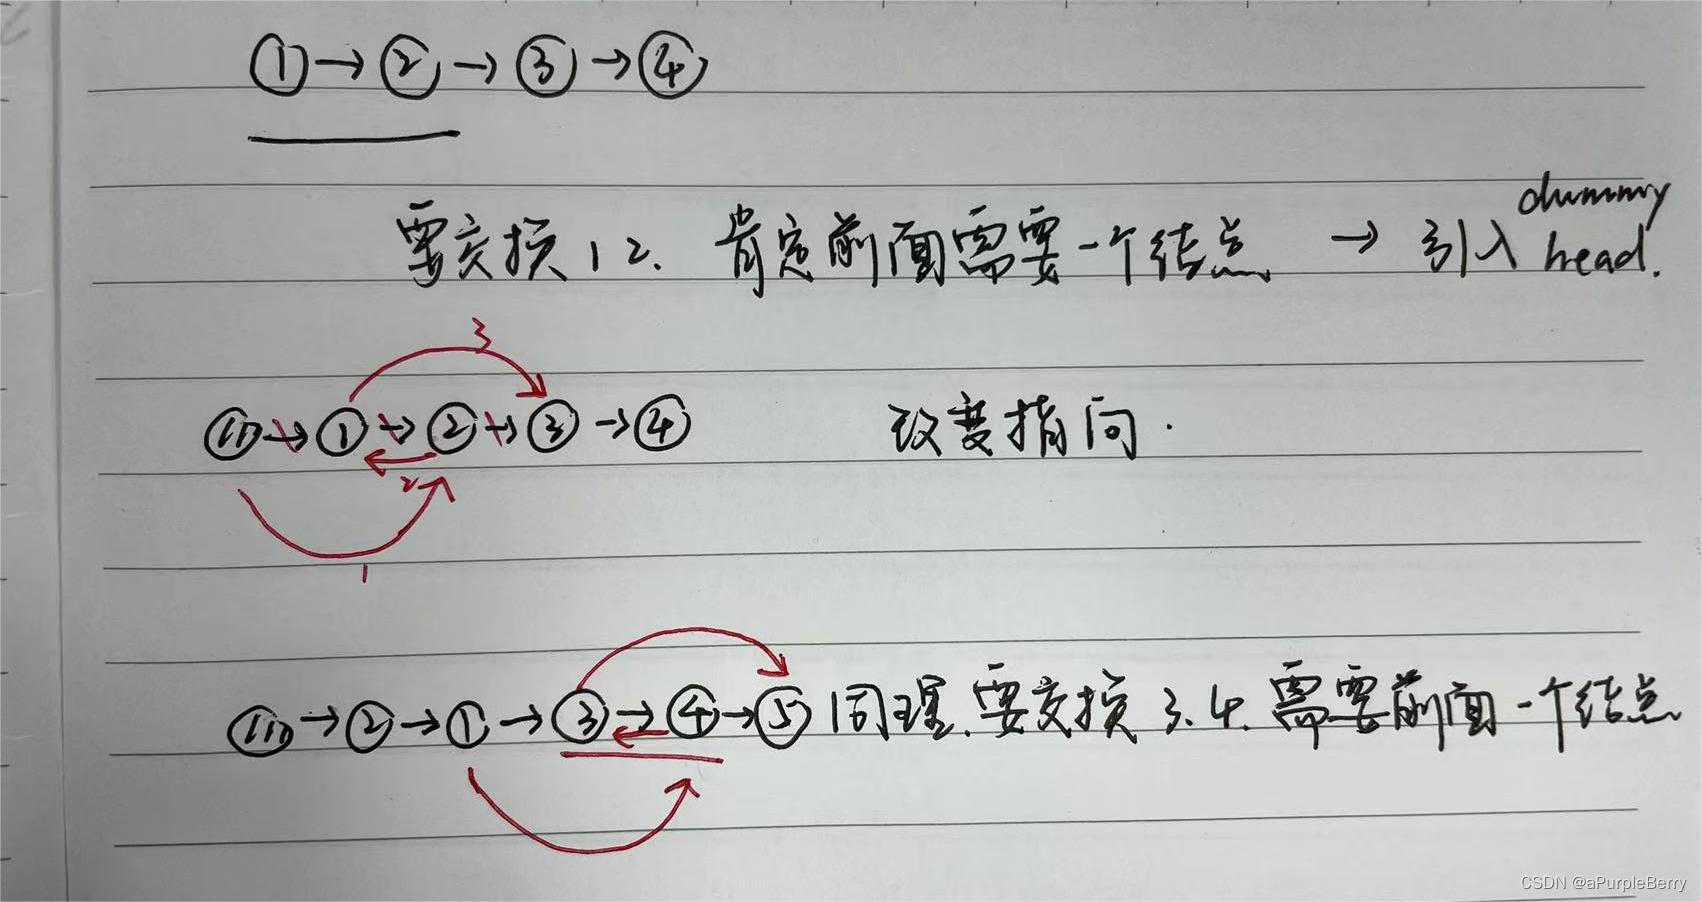 ① → ② → ③ → ④
要交换 1 2. 肯定前面需要一个结点 → 引入 dummy head.
3
→ ① → ② → ③ → ④ 改变指向.
2
1
→ ② → ① → ③ → ④ → ⑤ 同理. 要交换 3. 4. 需要前面一个结点
CSDN @aPurpleBerry